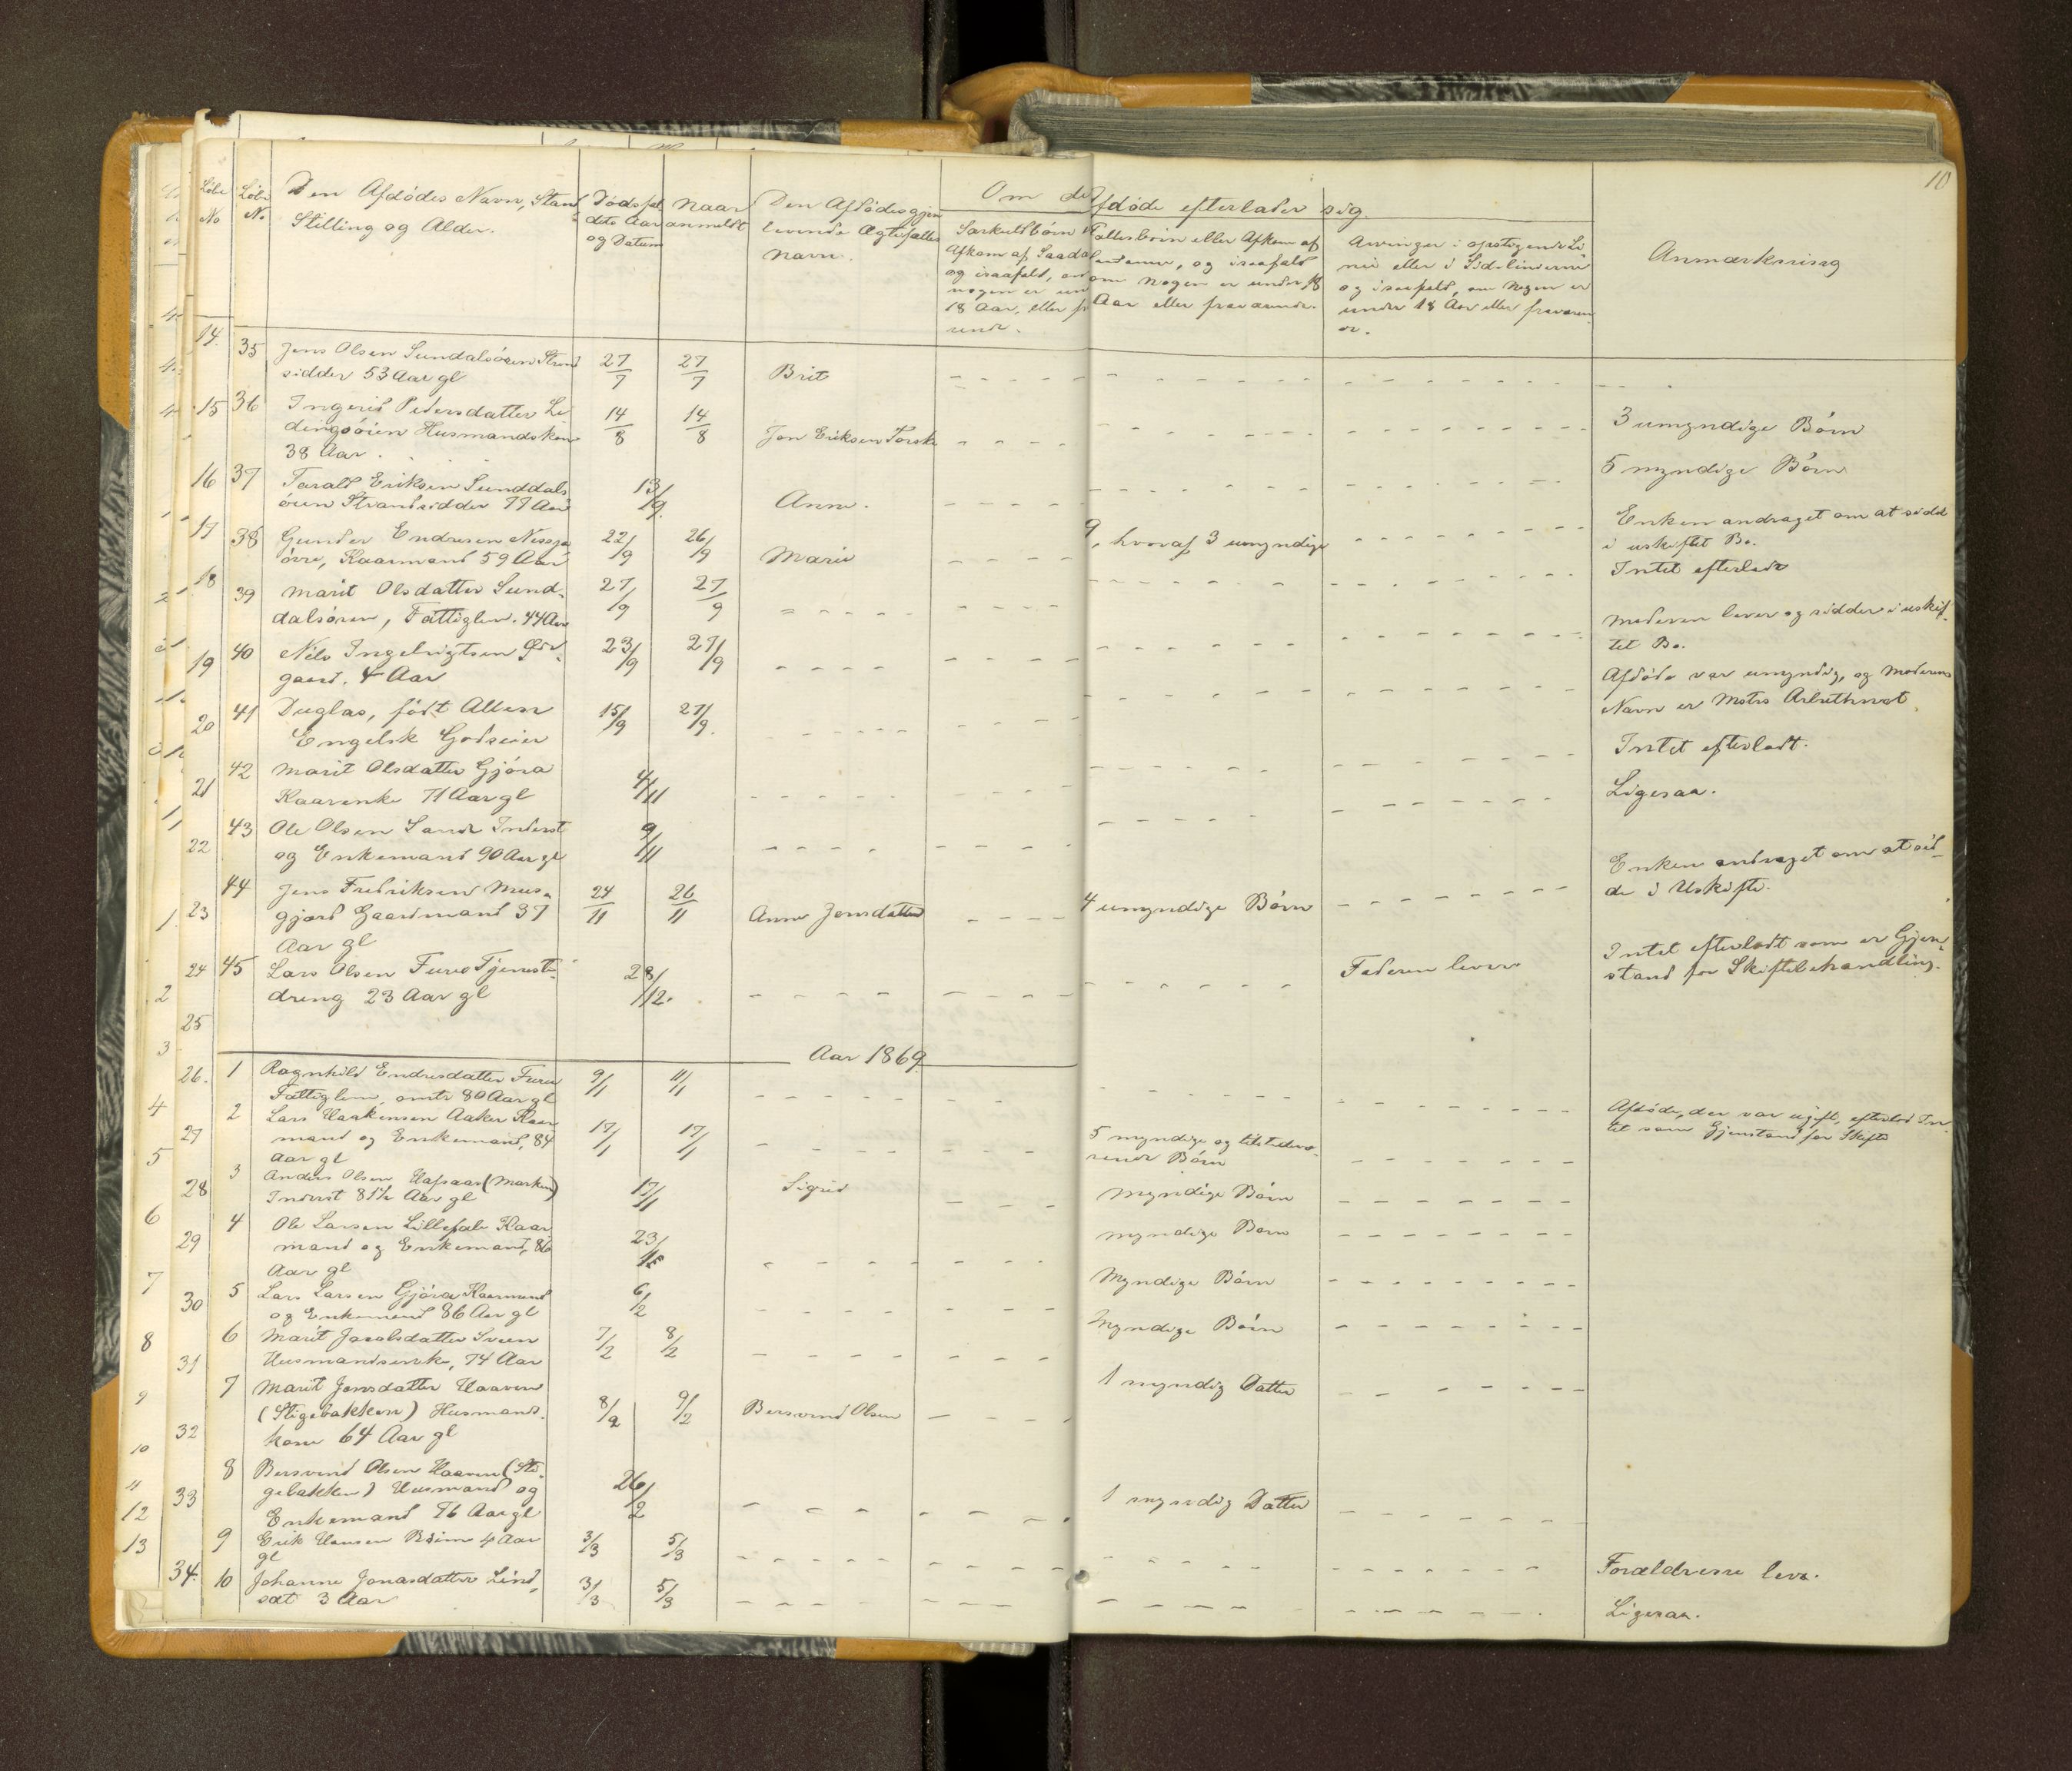 10
Løbe No
Løbe No.
Den Afdödes Navn, Stand
Stilling og Alder.
Dödsfal
dets Aar
og Datum
naar
anmeldt
Den Afdödes gjen
levende Ægtefælles
navn.
Om den Afdøde efterlader sig.
Særkuldbörn
Afkom af Saadan
og isaafald, om
nogen er un
18 Aar, eller fr
ende.
Fællesbörn eller Afkom af
saadanne, og isaafald
om nogen er under 18
Aar eller fraværende.
Arvinger i opstigende Li
nie eller i Sidelinierne
og isaafald, om Nogen er
under 18 Aar eller fraværen
de.
Anmærkning
35 Jens Olsen Sundalsören Strand
sidder 53 Aar gl 27/7 27/7 Brit
36 Ingerid Pedersdatter Le
dingsöien Husmandskone 14/8 14/8 Jon Eriksen 3 umyndige Börn
38 Aar.
37 Tarald Eriksen Sunddals
ören Strandsidder 77 Aar 13/9 Anne. 5 myndige Börn
38 Gunder Endresen
övre, Kaarmand 59 Aar 22/9 26/9 Marie 9, hvoraf 3 umyndige Enken andraget om at sidde
i uskiftet Bo.
39 Marit Olsdatter Sund-
dalsören, Fattiglem. 44 Aar 27/9 27/9 Intet efterladt
40 Nils Ingebrigtsen
gaard. 4 Aar 23/9 27/9 Moderen lever og sidder i uskif-
tet Bo.
41 Duglas, födt Allen
Engelsk Godseier 15/9 27/9. Afdöde var umyndig, og Moderens
Navn er Mstrs Arbuthnot
42 Marit Olsdatter Gjöra
Kaarenke 71 Aar gl 4/11 Intet efterladt.
43 Ole Olsen Sande Inderst
og Enkemand 90 Aar gl 9/11 Ligesaa.
44 Jens Fredriksen Mus-
gjerd Gaardmand 37 24/11 26/11 Anne Jensdatter 4 umyndige Börn Enken andraget om at sid-
de i Uskifte.
Aar gl
45 Lars Olsen Furu Tjeneste-
dreng 23 Aar gl 28/12. Faderen lever Intet efterladt som er Gjen-
stand for Skiftebehandling.
Aar 1869
1 Ragnhild Endresdatter Furu
Fattiglem, omtr 80 Aar gl 9/1 11/1 Afdöde, der var ugift, efterlod In-
tet som Gjenstand for Skifte
2 Lars Haakensen Aaker Kaar-
mand og Enkemand, 84 17/1 17/1 5 myndige og tilstedevæ-
rende Börn
Aar gl
3 Anders Olsen Hafsaas (Marken)
Inderst 81½ Aar gl 17/1 Sigrid Myndige Börn
4 Ole Larsen Lillefale Kaar
mand og Enkemand, 86 23/1 myndige Börn
Aar gl
5 Lars Larsen Gjöra Kaarmand
og Enkemand 86 Aar gl 6/2 Myndige Börn
6 Marit Jacobsdatter Sveen
Husmandsenke, 74 Aar 7/2 8/2 Myndige Börn
7 Marit Jonsdatter Haaven
(Stigebakken) Husmands- 8/2 9/2 Bersvend Olsen 1 myndig Datter
kone 64 Aar gl
8 Bersvend Olsen Haaven (Sti-
gebakken) Husmand og 26/2 1 myndig Datter
Enkemand 76 Aar gl
9 Erik Hansen 4 Aar
gl 3/3 5/3 Forældrene lever.
10 Johanne Jonasdatter Lind-
sæt 3 Aar 3/3 5/3 Ligesaa.
14.
15
16
17
18
19
20
21
22
23
24
25
26.
27
28
29
30
31
32
33
34.
1.
2
3
4
5
6
7
8
9
10
11
12
13